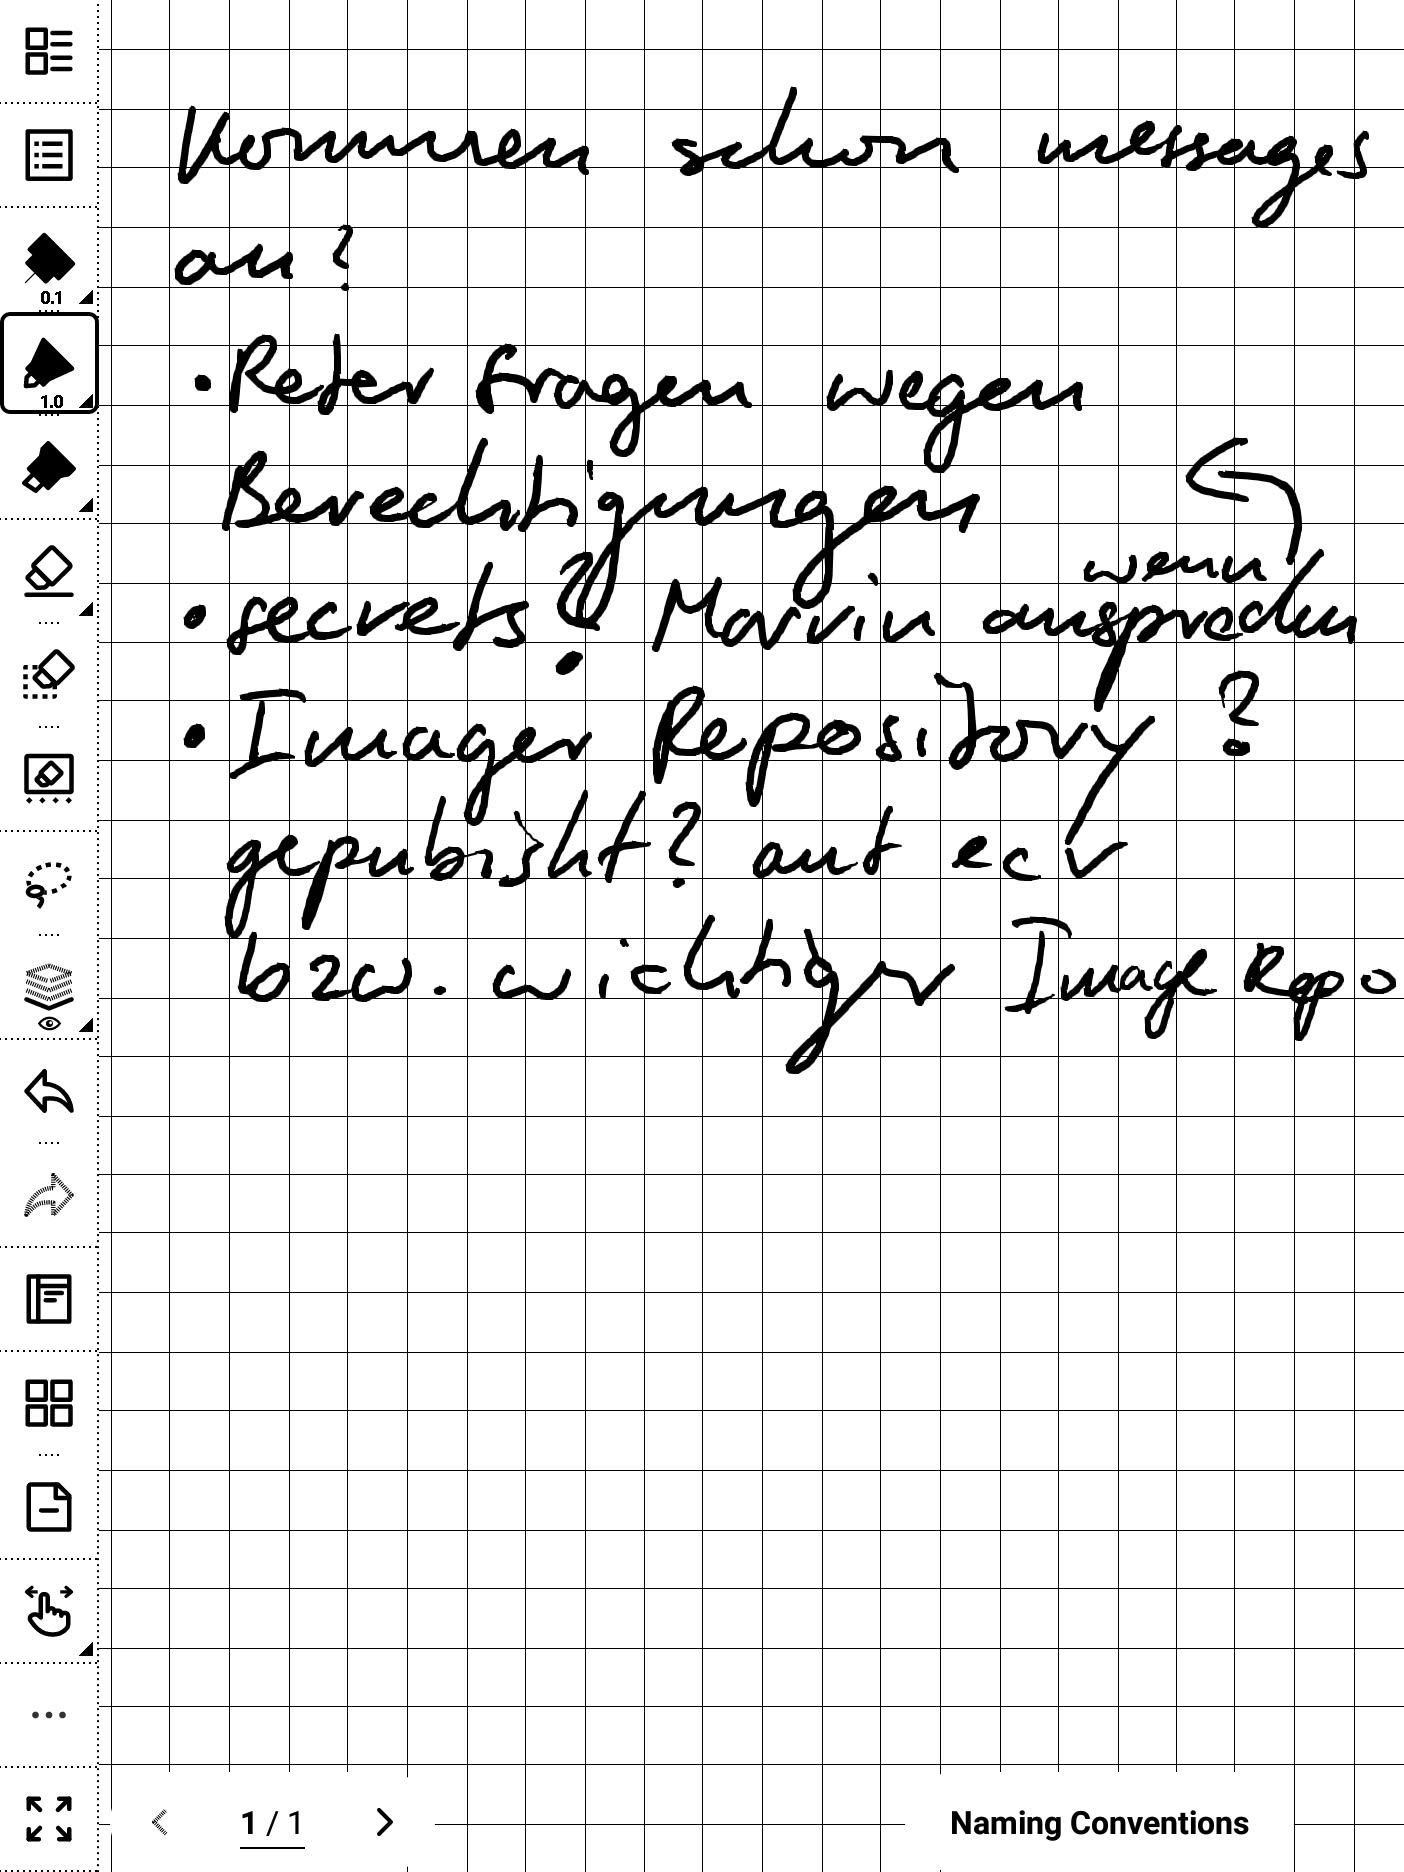 Kommen schon messages
an?
• Peter fragen wegen
Berechtigungen
wenn
• secrets? Marvin ansprechen
• Imager Repository ?
gepubisht? auf ecr
bzw. wichtiger Image Repo
0.1
1.0
1 / 1
Naming Conventions